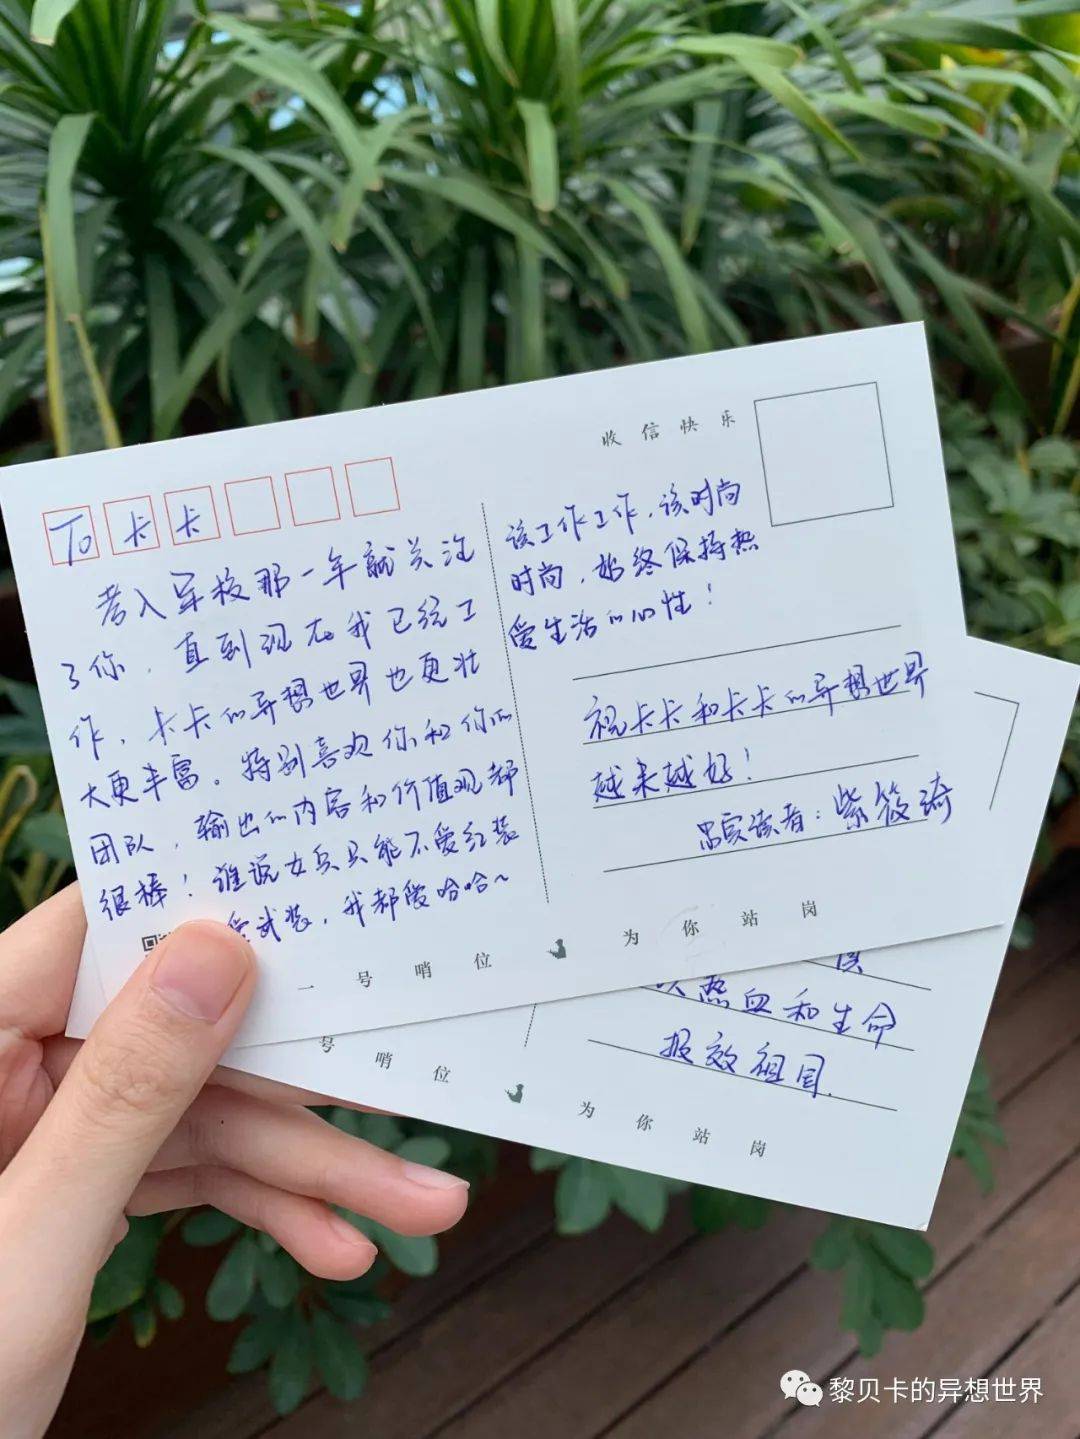 收信快乐
To 卡卡
考入军校那一年就关注
了你，直到现在我已经工
作，卡卡的异想世界也更壮
大更丰富。特别喜欢你和你的
团队，输出的内容和价值观都
很棒！谁说女兵只能不爱红装
爱武装，我都爱哈哈~
该工作工作，该时尚
时尚，始终保持热
爱生活的心性！
祝卡卡和卡卡的异想世界
越来越好！
忠实读者：紫筱琦
一号哨位 为你站岗
热血和生命
报效祖国.
号哨位 为你站岗
黎贝卡的异想世界